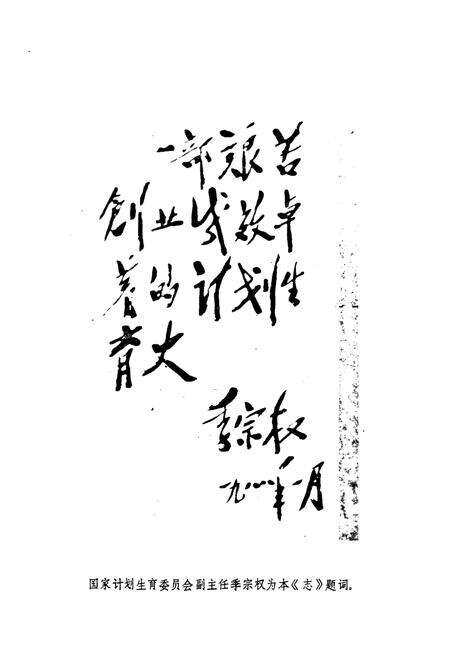 一部艰苦
創业成效卓
著的计划生
育史
季宗权
年一月
国家计划生育委员会副主任季宗权为本《志》题词。